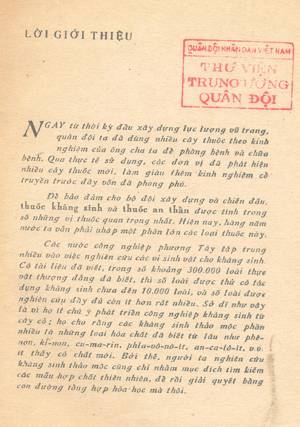 LỜI GIỚI THIỆU
QUÂN ĐỘI NHÂN DÂN VIỆT NAM
THƯ VIỆN
TRUNG ƯƠNG
QUÂN ĐỘI
NGAY từ thời kỳ đầu xây dựng lực lượng vũ trang,
quân đội ta đã dùng nhiều cây thuốc theo kinh
nghiệm của ông cha ta để phòng bệnh và chữa
bệnh. Qua thực tế sử dụng, các đơn vị đã phát hiện
nhiều cây thuốc mới, làm giàu thêm kinh nghiệm cổ
truyền trước đây vốn đã phong phú.
Để bảo đảm cho bộ đội xây dựng và chiến đấu,
thuốc kháng sinh và thuốc an thần được tính trong
số những vị thuốc quan trọng nhất. Hiện nay, hàng năm
nước ta vẫn phải nhập một phần lớn các loại thuốc này.
Các nước công nghiệp phương Tây tập trung
nhiều vào việc nghiên cứu các vi sinh vật cho kháng sinh.
Có tài liệu đã viết, trong số khoảng 300.000 loài thực
vật thượng đẳng đã biết, thì số loài được thử có tác
dụng kháng sinh chưa đến 10.000 loài, và số loài được
nghiên cứu đầy đủ còn ít hơn rất nhiều. Sở dĩ như vậy
là vì họ ít chú ý phát triển công nghiệp kháng sinh từ
cây cỏ; họ cho rằng các kháng sinh thảo mộc phần
nhiều là những loại hóa chất đã biết từ lâu như phê-
non, ki-non, cu-ma-rin, phla-vô-nô-it, an-ca-lô-it, v.v.
ít thấy có chất mới. Bởi thế, người ta nghiên cứu
kháng sinh thảo mộc cũng chỉ nhằm mục đích tìm kiếm
các mẫu hợp chất thiên nhiên, để rồi giải quyết bằng
con đường tổng hợp hóa-học mà thôi.